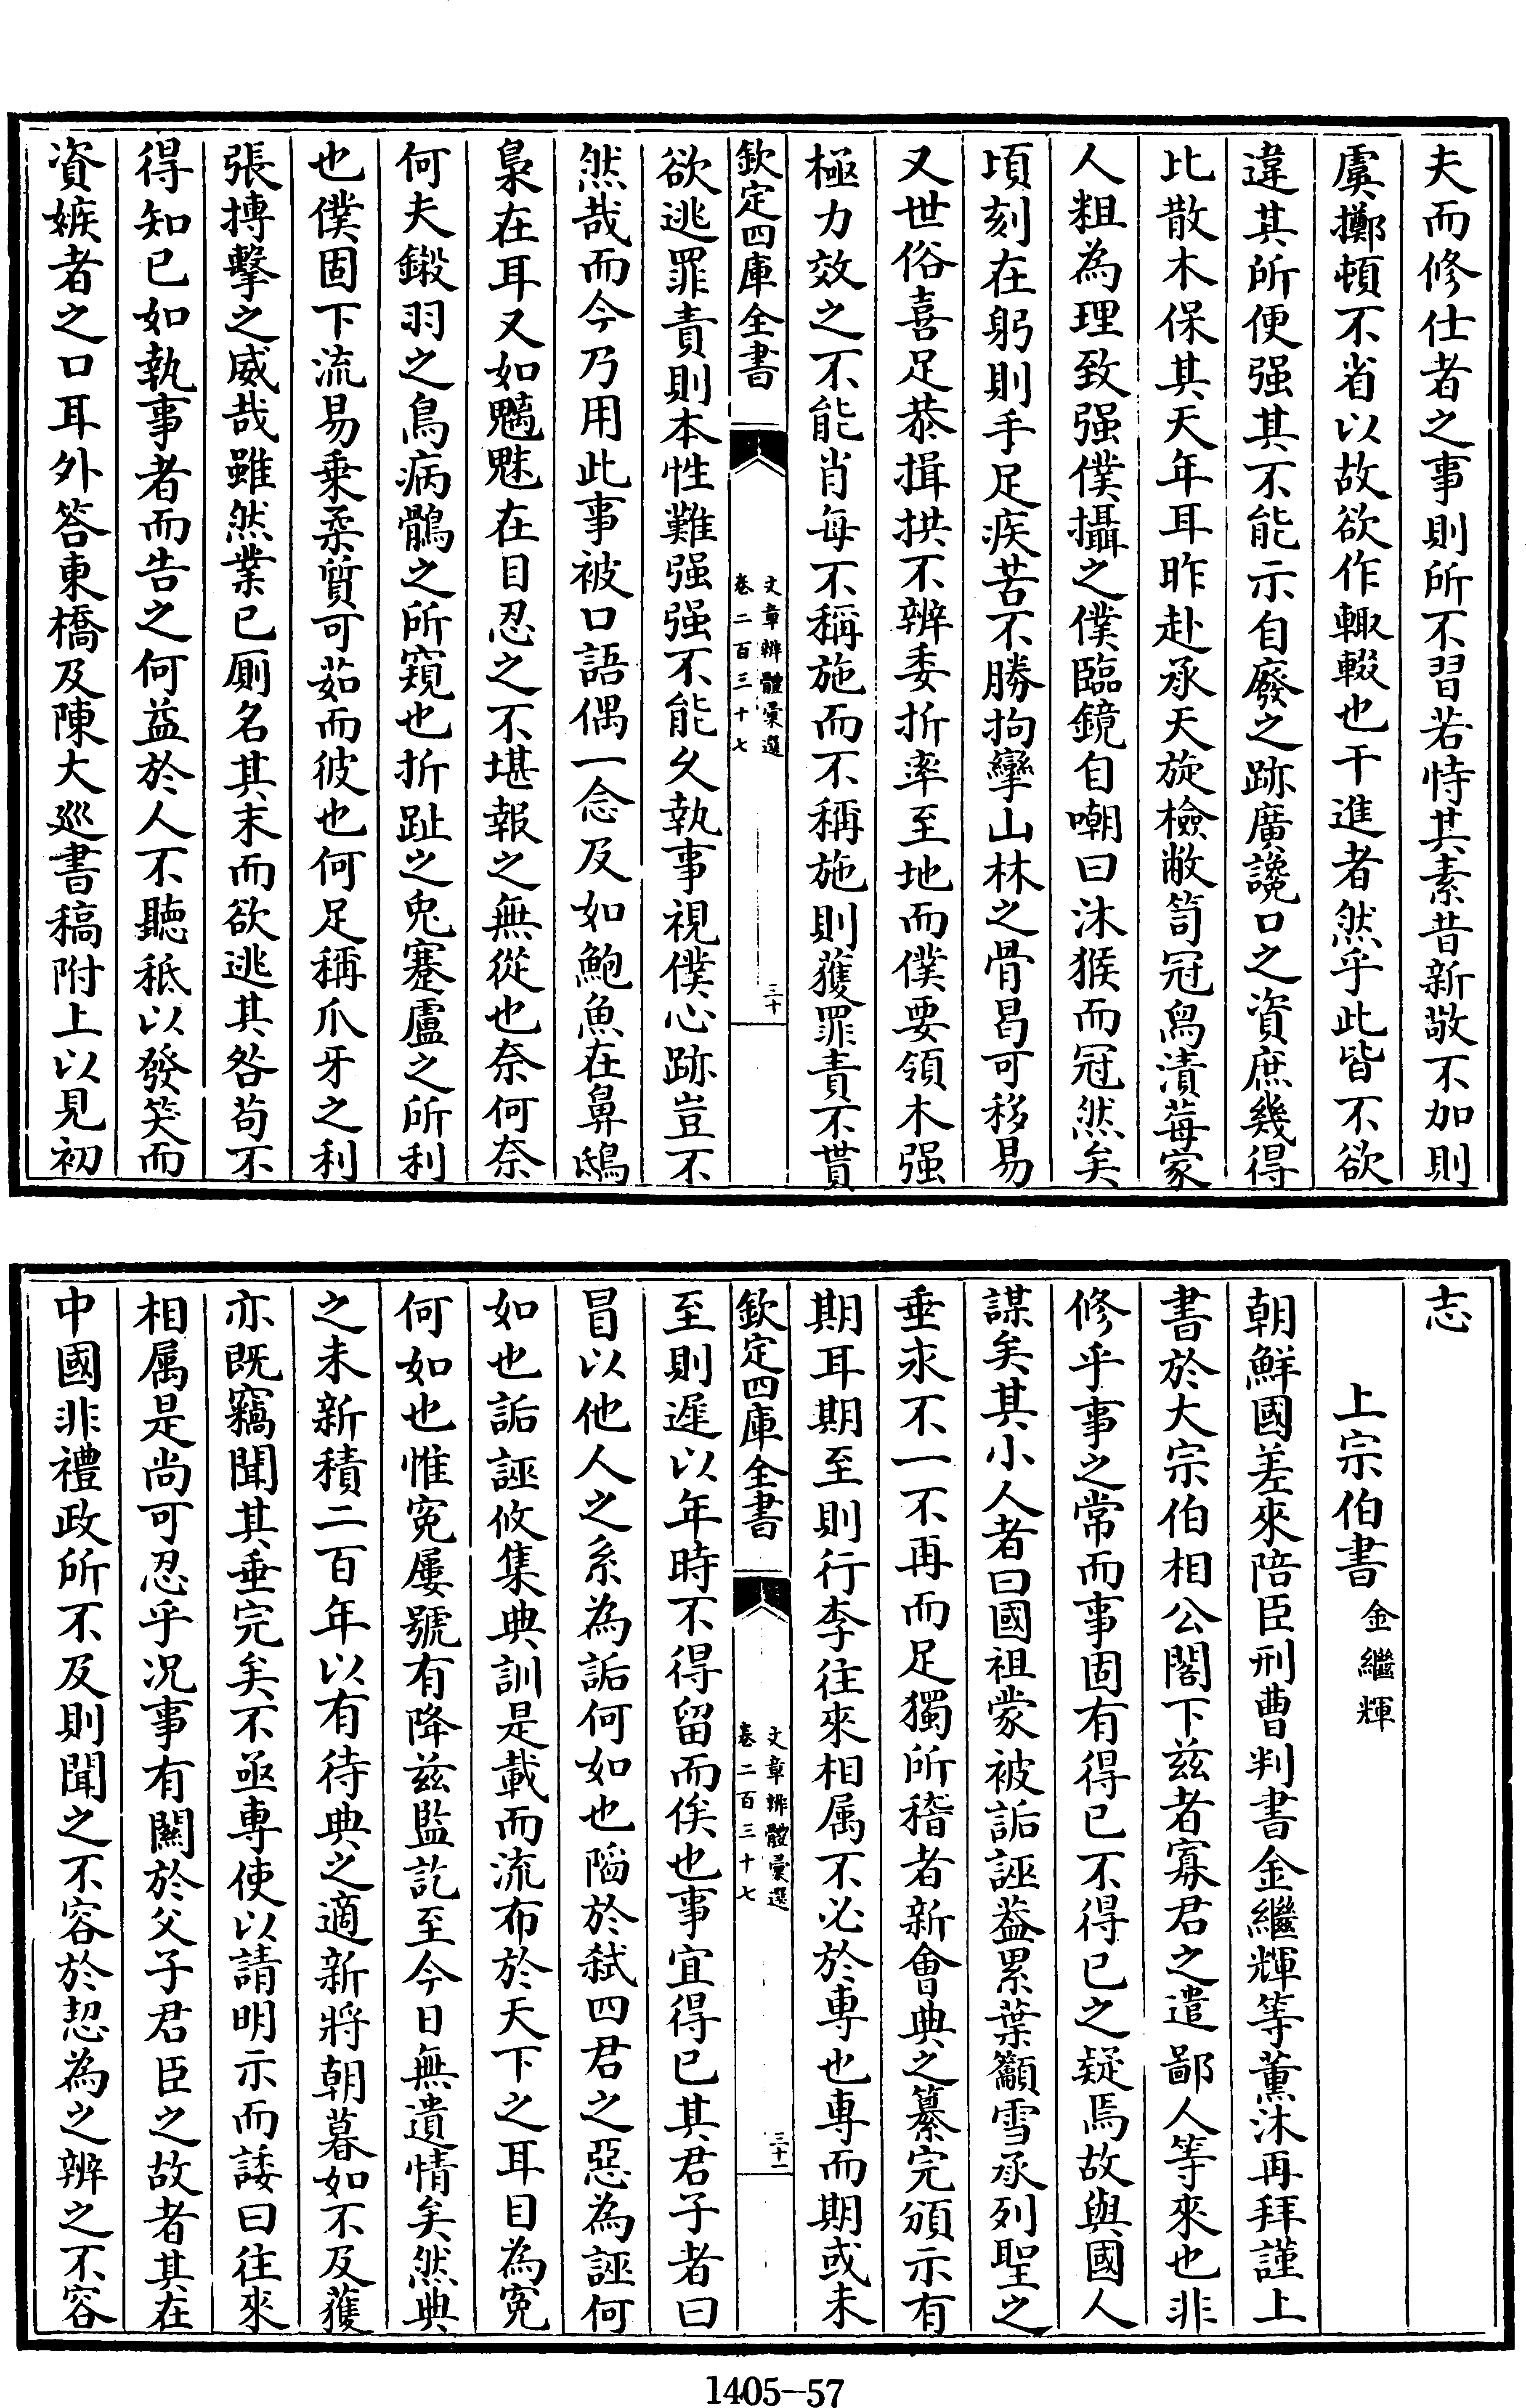 夫而修仕者之事則所不習若恃其素昔新敬不加則
虞擲頓不省以故欲作輙輟也干進者然乎此皆不欲
違其所便强其不能示自廢之跡廣讒口之資庶幾得
比散木保其天年耳昨赴承天旋檢敝笥冠舄漬莓家
人粗為理致强僕攝之僕臨鏡自嘲曰沐猴而冠然矣
頃刻在躬則手足疾苦不勝拘攣山林之骨曷可移易
又世俗喜足恭揖拱不辨委折率至地而僕要領木强
極力效之不能肖每不稱施而不稱施則獲罪責不貰
欽定四庫全書
文章辨體彙選
卷二百三十七
三十
欲逃罪責則本性難强强不能久執事視僕心跡豈不
然哉而今乃用此事被口語偶一念及如鮑魚在鼻鴟
梟在耳又如魑魅在目忍之不堪報之無從也奈何奈
何夫鎩羽之鳥病鶻之所窺也折趾之兎蹇盧之所利
也僕固下流易乗柔質可茹而彼也何足稱爪牙之利
張搏擊之威哉雖然業已厠名其末而欲逃其咎苟不
得知已如執事者而告之何益於人不聽秪以發笑而
資嫉者之口耳外答東橋及陳大廵書稿附上以見初
志
上宗伯書 金繼輝
朝鮮國差來陪臣刑曹判書金繼輝等薰沐再拜謹上
書於大宗伯相公閣下兹者寡君之遣鄙人等來也非
修乎事之常而事固有得已不得已之疑焉故與國人
謀矣其小人者曰國祖蒙被詬誣葢累葉籲雪承列聖之
垂求不一不再而足獨所稽者新會典之纂完頒示有
期耳期至則行李往來相属不必於専也専而期或未
欽定四庫全書
文章辨體彙選
卷二百三十七
三十一
至則遲以年時不得留而俟也事宜得已其君子者曰
冒以他人之系為詬何如也陷於弑四君之惡為誣何
如也詬誣攸集典訓是載而流布於天下之耳目為寃
何如也惟寃屢號有降兹監訖至今日無遺情矣然典
之未新積二百年以有待典之適新將朝暮如不及獲
亦既竊聞其垂完矣不亟専使以請明示而諉曰往來
相属是尚可忍乎况事有關於父子君臣之故者其在
中國非禮政所不及則聞之不容於恝為之辨之不容
1405—57